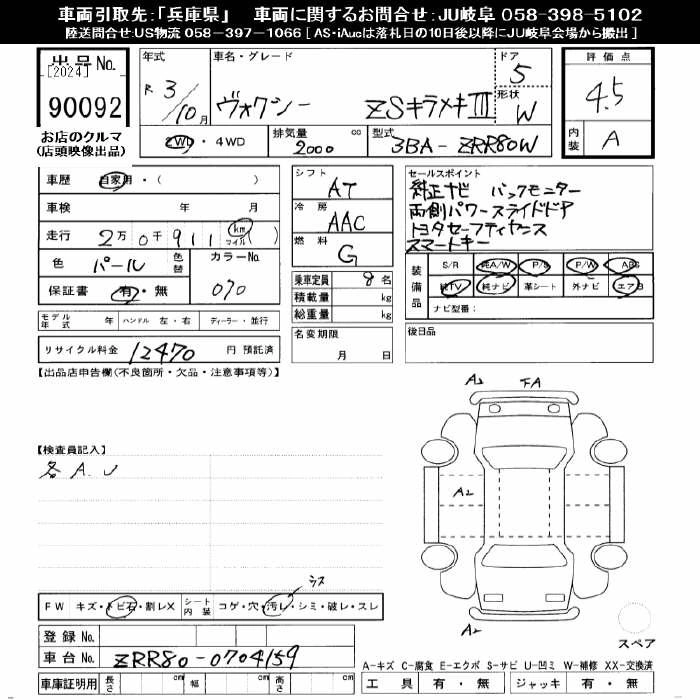 車両引取先:「兵庫県」 車両に関するお問合せ:JU岐阜 058-398-5102
陸送問合せ:US物流 058-397-1066 [ AS・iAucは落札日の10日後以降にJU岐阜会場から搬出 ]
出品No.
[2024]
90092
お店のクルマ
(店頭映像出品)
年式 車名・グレード ドア 評価点
R 3/10月 ヴォクシー ZSキラメキⅢ 5 形状 W 4.5
2WD・4WD 排気量 2000 cc 型式 3BA-ZRR80W 内装 A
車歴 自家用・( )
車検 年 月
走行 2万0千911 km マイル
色 パール 色替 カラーNo. 070
保証書 有・無
シフト AT
冷房 AAC
燃料 G
乗車定員 8名
積載量 kg
総重量 kg
セールスポイント
純正ナビ バックモニター
両側パワースライドドア
トヨタセーフティセンス
スマートキー
装備品 S/R 純A/W P/S P/W ABS
純TV 純ナビ 革シート 外ナビ エアB
ナビ型番:
モデル年式 年 ハンドル 左・右 ディーラー・並行
名変期限 月 日
後日品
リサイクル料金 12470 円 預託済
【出品店申告欄(不良箇所・欠品・注意事項等)】
A2 FA
【検査員記入】
各A.U
A2
ラス
FW キズ・トビ石・割レX シート内装 コゲ・穴・汚レ・シミ・破レ・スレ
A2
スペア
登録No.
車台No. ZRR80-0704159
A-キズ C-腐食 E-エクボ S-サビ U-凹ミ W-補修 XX-交換済
車庫証明用 長さ cm 幅 cm 高さ cm
工具 有・無 ジャッキ 有・無